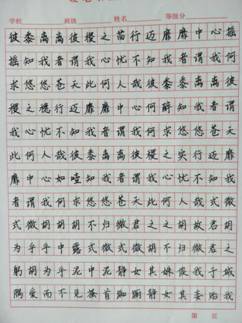 学校 班级 姓名 等级分
彼黍离离彼稷之苗行迈靡靡中心摇
摇知我者谓我心忧不知我者谓我何
求悠悠苍天此何人哉彼黍离离彼
稷之穗行迈靡靡中心如醉知我者谓
我心忧不知我者谓我何求悠悠苍天
此何人哉彼黍离离彼稷之实行迈靡
靡中心如噎知我者谓我心忧不知我
者谓我何求悠悠苍天此何人哉式微
式微胡不归微君之故胡
为乎中露式微式微胡不归微君之
躬胡为乎泥中静女其姝俟我于城
隅爱而不见搔首踟蹰静女其娈贻我
第 页